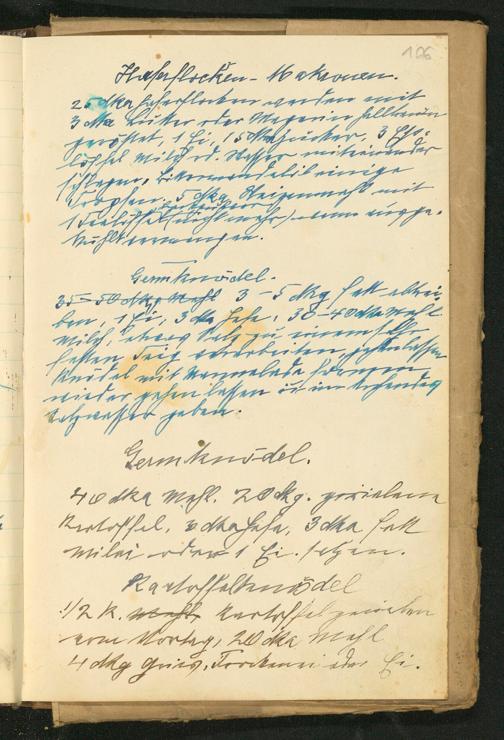 106
Haferflocken-Makronen.
25 dka Haferflocken werden mit
3 dka Butter oder Margarin hellbraun
geröstet, 1 Ei, 15 dka Zucker, 3 Eß-
löffel Milch od. Wasser miteinander
schlagen, Bittermandelöl einige
Tropfen, 5 dkg Weizenmehl mit
1 Teelöffel Backpulver (nicht mehr)
Germknödel.
35-50 dkg Mehl 3-5 dkg Fett abtrei-
ben, 1 Ei, 3 dka Hefe, 30-40 dka Mehl
Milch, etwas Salz zu einem
festen Teig verarbeiten,
Knödel mit Marmelade
wieder gehen lassen u. in kochendes
Salzwasser geben.
Germknödel.
40 dka Mehl. 20 dkg. geriebene
Kartoffel, 3 dka Hefe, 3 dka Fett
Milei oder 1 Ei. Salzen.
Kartoffelknödel
1/2 K. Mehl Kartoffel gerieben
vom Vortag, 20 dka Mehl
4 dkg Gries, Trockenei oder Ei.